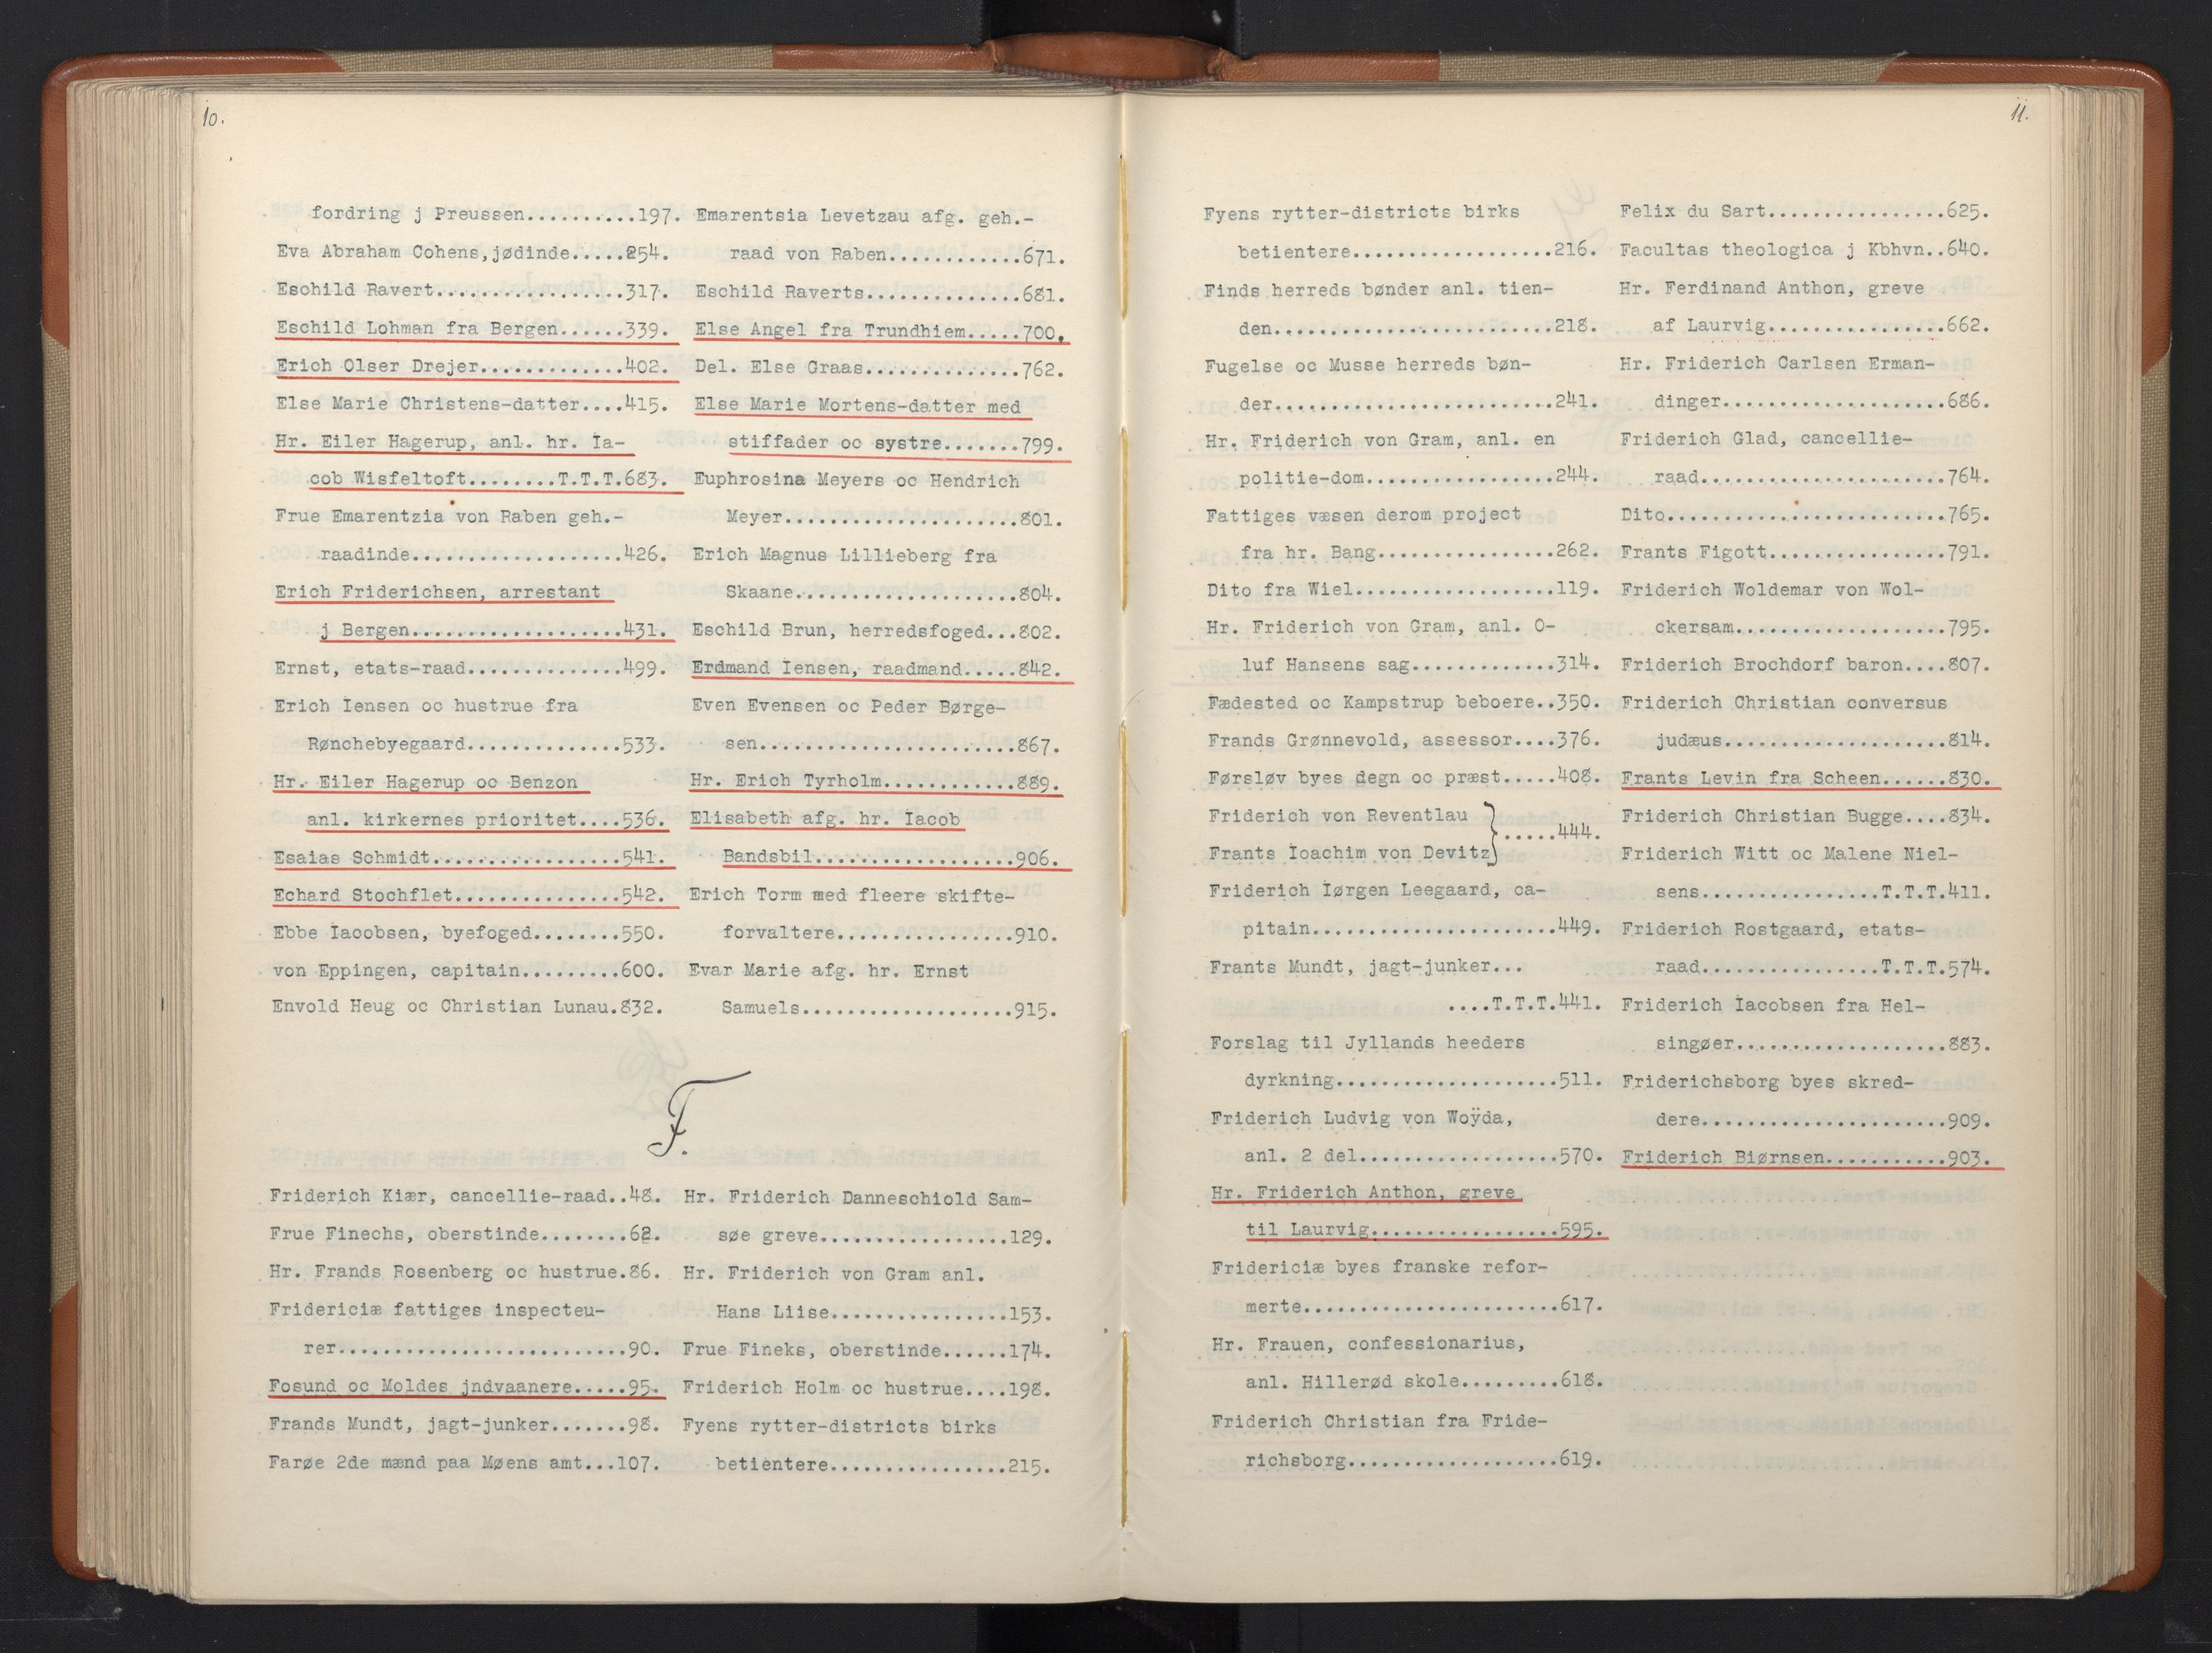 10.
fordring j Preussen..........197.
Eva Abraham Cohens,jødinde.....254.
Eschild Ravert.................317.
Eschild Lohman fra Bergen......339.
Erich Olser Drejer.............402.
Else Marie Christens-datter....415.
Hr. Eiler Hagerup, anl. hr. Ia-
cob Wisfeltoft........T.T.T.683.
Frue Emarentzia von Raben geh.-
raadinde...................426.
Erich Friderichsen, arrestant
j Bergen...................431.
Ernst, etats-raad..............499.
Erich Iensen oc hustrue fra
Rønchebyegaard..............533.
Hr. Eiler Hagerup oc Benzon
anl. kirkernes prioritet....536.
Esaias Schmidt.................541.
Echard Stochflet...............542.
Ebbe Iacobsen, byefoged........550.
von Eppingen, capitain.........600.
Envold Heug oc Christian Lunau.832.
Emarentsia Levetzau afg. geh.-
raad von Raben............671.
Eschild Raverts..............681.
Else Angel fra Trundhiem.....700.
Del. Else Graas..............762.
Else Marie Mortens-datter med
stiffader oc systre.......799.
Euphrosina Meyers oc Hendrich
Meyer.....................801.
Erich Magnus Lillieberg fra
Skaane....................804.
Eschild Brun, herredsfoged...802.
Erdmand Iensen, raadmand.....842.
Even Evensen oc Peder Børge-
sen.......................867.
Hr. Erich Tyrholm............889.
Elisabeth afg. hr. Iacob
Bandsbil..................906.
Erich Torm med fleere skifte-
forvaltere................910.
Evar Marie afg. hr. Ernst
Samuels...................915.
F.
Friderich Kiær, cancellie-raad..48.
Frue Finechs, oberstinde........62.
Hr. Frands Rosenberg oc hustrue.86.
Fridericiæ fattiges inspecteu-
rer..........................90.
Fosund oc Moldes jndvaanere.....95.
Frands Mundt, jagt-junker.......98.
Farøe 2de mænd paa Møens amt...107.
Hr. Friderich Danneschiold Sam-
søe greve.................129.
Hr. Friderich von Gram anl.
Hans Liise................153.
Frue Fineks, oberstinde......174.
Friderich Holm oc hustrue....198.
Fyens rytter-districts birks
betientere................215.
11.
Fyens rytter-districts birks
betientere..................216.
Finds herreds bønder anl. tien-
den.........................218.
Fugelse oc Musse herreds bøn-
der.........................241.
Hr. Friderich von Gram, anl. en
politie-dom.................244.
Fattiges væsen derom project
fra hr. Bang................262.
Dito fra Wiel..................119.
Hr. Friderich von Gram, anl. O-
luf Hansens sag.............314.
Fædested oc Kampstrup beboere..350.
Frands Grønnevold, assessor....376.
Førsløv byes degn oc præst.....408.
Friderich von Reventlau
Frants Ioachim von Devitz} .....444.
Friderich Iørgen Leegaard, ca-
pitain......................449.
Frants Mundt, jagt-junker...
....T.T.T.441.
Forslag til Jyllands heeders
dyrkning....................511.
Friderich Ludvig von Woÿda,
anl. 2 del..................570.
Hr. Friderich Anthon, greve
til Laurvig.................595.
Fridericiæ byes franske refor-
merte.......................617.
Hr. Frauen, confessionarius,
anl. Hillerød skole.........618.
Friderich Christian fra Fride-
richsborg...................619.
Felix du Sart................625.
Facultas theologica j Kbhvn..640.
Hr. Ferdinand Anthon, greve
af Laurvig................662.
Hr. Friderich Carlsen Erman-
dinger....................686.
Friderich Glad, cancellie-
raad......................764.
Dito.........................765.
Frants Figott................791.
Friderich Woldemar von Wol-
ckersam...................795.
Friderich Brochdorf baron....807.
Friderich Christian conversus
judæus....................814.
Frants Levin fra Scheen......830.
Friderich Christian Bugge....834.
Friderich Witt oc Malene Niel-
sens................T.T.T.411.
Friderich Rostgaard, etats-
raad................T.T.T.574.
Friderich Iacobsen fra Hel-
singøer...................883.
Friderichsborg byes skred-
dere......................909.
Friderich Biørnsen...........903.